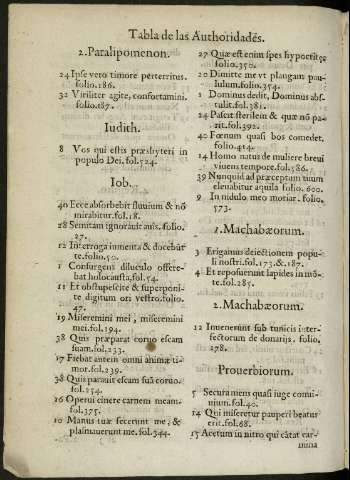 Tabla de las Authoridades.
2. Paralipomenon.
24 Ipse vero timore perterritus.
folio.186.
32 Viriliter agite, confortamini.
folio.187.
Iudith.
8 Vos qui estis præsbyteri in
populo Dei. fol.524.
Iob.
40 Ecce absorbebit fluuium & nõ
mirabitur. fol.18.
28 Semitam ignorauit auis. folio.
27.
12 Interroga iumenta & docebũt
te. folio.50.
1 Consurgens diluculo offere-
bat holocausta. fol.54.
21 Et obstupescite & superponi-
te digitum ori vestro. folio.
47.
19 Miseremini mei, miseremini
mei. fol.194.
38 Quis præparat coruo escam
suam. fol.233.
17 Fiebat autem omni animæ ti-
mor. fol.239.
38 Quis parauit escam suã coruo.
fol.254.
16 Operui cinere carnem meam.
fol.375.
10 Manus tuæ fecerunt me, &
plasmauerunt me. fol.344.
27 Quæ est enim spes hypocritę
folio.350.
20 Dimitte me vt plangam pau-
lulum. folio.354.
2 Dominus dedit, Dominus abs-
tulit. fol.381.
24 Pascit sterilem & quæ nõ pa-
rit. fol.392.
40 Fœnum quasi bos comedet.
folio.414.
14 Homo natus de muliere breui
viuens tempore. fol.586.
39 Nunquid ad præceptum tuum
eleuabitur aquila folio. 600.
9 In nidulo meo moriar. folio.
573.
1. Machabæorum.
3 Erigamus deiectionem popu-
li nostri. fol.173.&.187.
4 Et reposuerunt lapides in mõ-
te. fol.285.
2. Machabæorum.
12 Inuenerunt sub tunicis inter-
fectorum de donarijs. folio,
278.
Prouerbiorum.
5 Secura mens quasi iuge conui-
uium. fol.40.
14 Qui miseretur pauperi beatus
erit. fol.68.
15 Acetum in nitro qui cãtat car-
mina